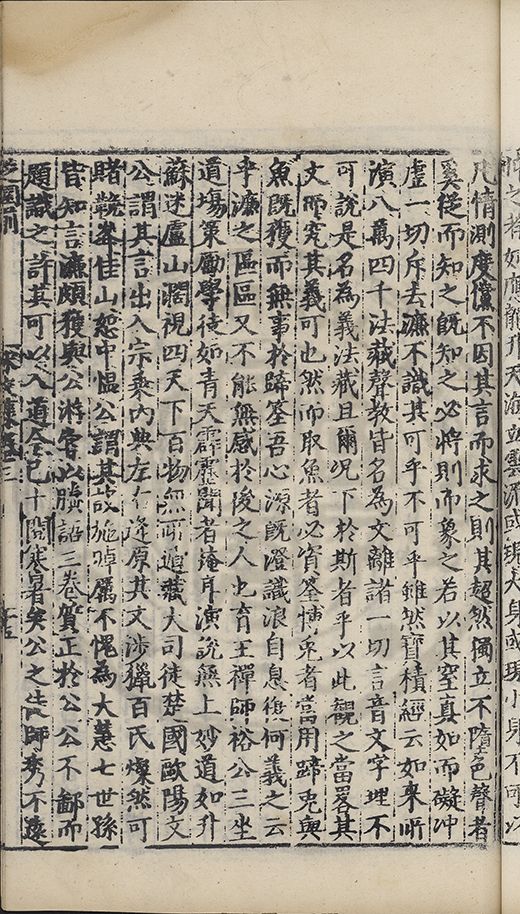 凡情測度儻不因其言而求之則其超然獨立不墮色聲者
奚從而知之既知之必將則而象之若以其窒真如而礙冲
虛一切斥去濂不識其可乎不可乎雖然寶積經云如來所
演八萬四千法藏聲教皆名為文離諸一切言音文字理不
可說是名為義法藏且爾況下於斯者乎以此觀之當畧其
文而究其義可也然而取魚者必資筌慱兎者當用蹄兎與
魚既獲而無事於蹄筌吾心源既澄識浪自息復何義之云
乎濂之區區又不能無感於後之人也育王禪師裕公三坐
道塲策勵學徒如青天霹靂聞者掩耳演說無上妙道如升
蘇迷盧山濶視四天下百物無所遁藏大司徒楚國歐陽文
公謂其言出入宗乘內典左右逢原其文涉獵百氏燦然可
睹靴峯佳山恕中慍公謂其故施踔厲不愧為大慧七世孫
皆知言濂頗獲與公游嘗以贖語三卷質正於公公不鄙而
題識之許其可以入道今已十閱寒暑矣公之法師秀不遠